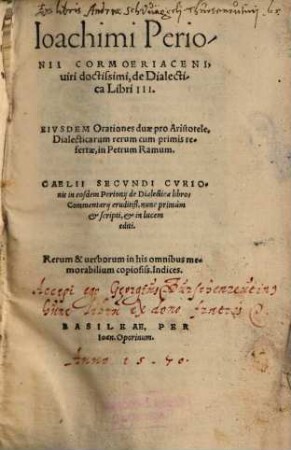 Ex libris Andreæ
Ioachimi Perio-
NII CORMOERIACENI,
uiri doctissimi, de Dialecti-
ca Libri III.
EIVSDEM Orationes duæ pro Aristotele,
Dialecticarum rerum cum primis re-
fertæ, in Petrum Ramum.
CAELII SECVNDI CVRIO-
nis in eosdem Perionij de Dialectica libros
Commentarij eruditiss. nunc primùm
& scripti, & in lucem
editi.
Rerum & uerborum in his omnibus me-
morabilium copiosiss. Indices.
Accepi ego Georgius
hunc librum ex dono
BASILEAE, PER
Ioan. Oporinum.
Anno 1570.